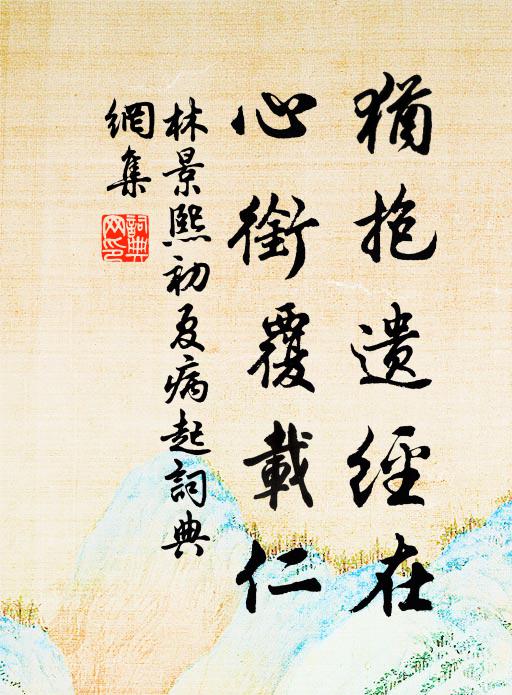 猶抱遺經在
心銜覆載仁
林景熙初夏病起詞典
網集
詞典網印